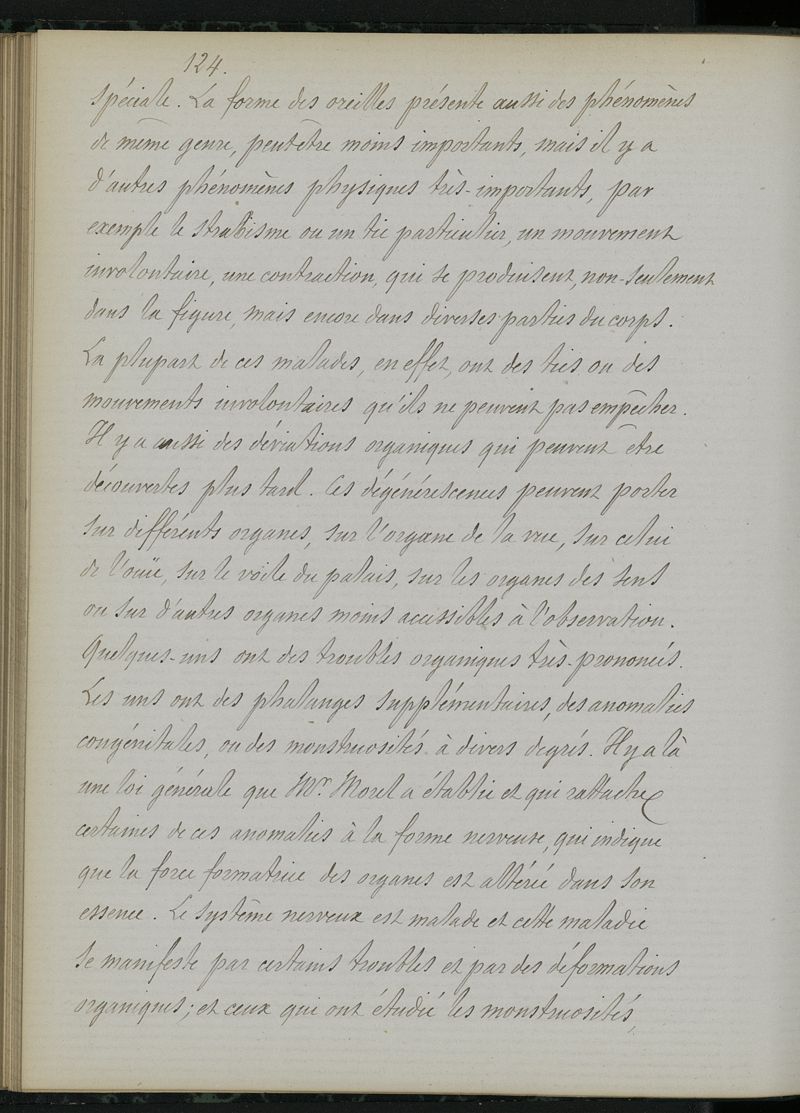 124.
spéciale. La forme des oreilles présente aussi des phénomènes
de même genre, peut être moins importants, mais il y a
d'autres phénomènes physiques très-importants, par
exemple le strabisme ou un tic particulier, un mouvement
involontaire, une contraction, qui se produisent, non-seulement
dans la figure, mais encore dans diverses parties du corps.
La plupart de ces malades, en effet, ont des tics ou des
mouvements involontaires qu'ils ne peuvent pas empêcher.
Il y a aussi des déviations organiques qui peuvent être
découvertes plus tard. Ces dégénérescences peuvent porter
sur différents organes, sur l'organe de la vue, sur celui
de l'ouïe, sur le voile du palais, sur les organes des sens
ou sur d'autres organes moins accessibles à l'observation.
Quelques-uns ont des troubles organiques très-prononcés.
Les uns ont des phalanges supplémentaires, des anomalies
congénitales, ou des monstruosités à divers degrés. Il y a là
une loi générale que Mr. Morel a établie et qui rattache
certaines de ces anomalies à la forme nerveuse, qui indique
que la force formatrice des organes est altérée dans son
essence. Le système nerveux est malade et cette maladie
se manifeste par certains troubles et par des déformations
organiques; et ceux qui ont étudié les monstruosités,